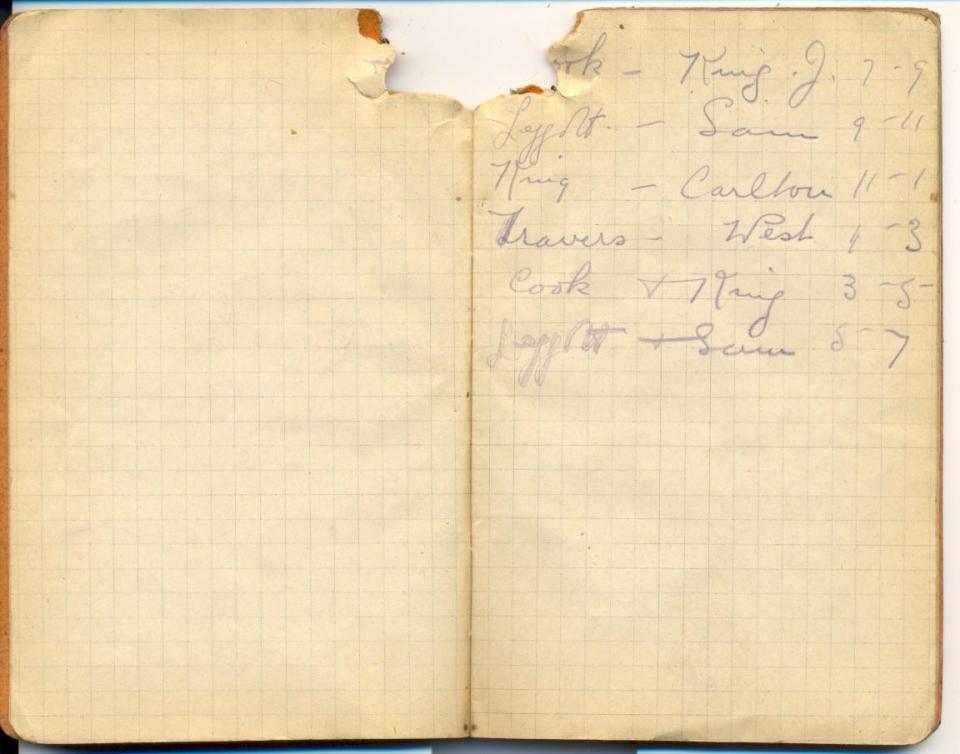 ook - King. J. 7-9
Leggott. - Sam 9-11
King - Carlton 11-1
Travers - West 1-3
Cook + King 3-5-
Leggott + Sam 5-7